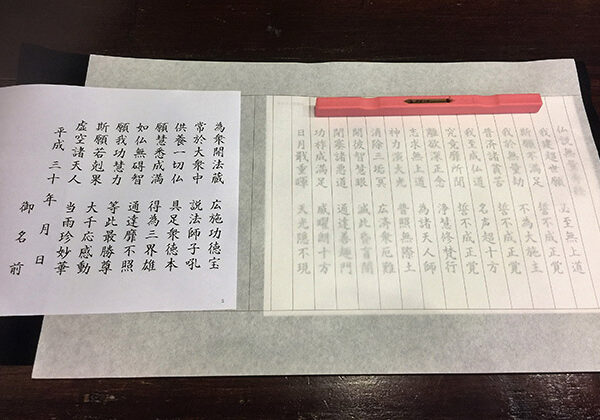 仏説無量寿
我建超世願 必至無上道
斯願不満足 誓不成正覚
我於無量劫 不為大施主
普済諸貧苦 誓不成正覚
我至成仏道 名声超十方
究竟靡所聞 誓不成正覚
離欲深正念 浄慧修梵行
志求無上道 為諸天人師
神力演大光 普照無際土
消除三垢冥 広済衆厄難
開彼智慧眼 滅此昏盲闇
閉塞諸悪道 通達善趣門
功祚成満足 威曜朗十方
日月戢重暉 天光隠不現
為衆開法蔵 広施功徳宝
常於大衆中 説法師子吼
供養一切仏 具足衆徳本
願慧悉成満 得為三界雄
如仏無碍智 通達靡不照
願我功慧力 等此最勝尊
斯願若剋果 大千応感動
虚空諸天人 当雨珍妙華
平成 三十 年 月 日
御名前
5